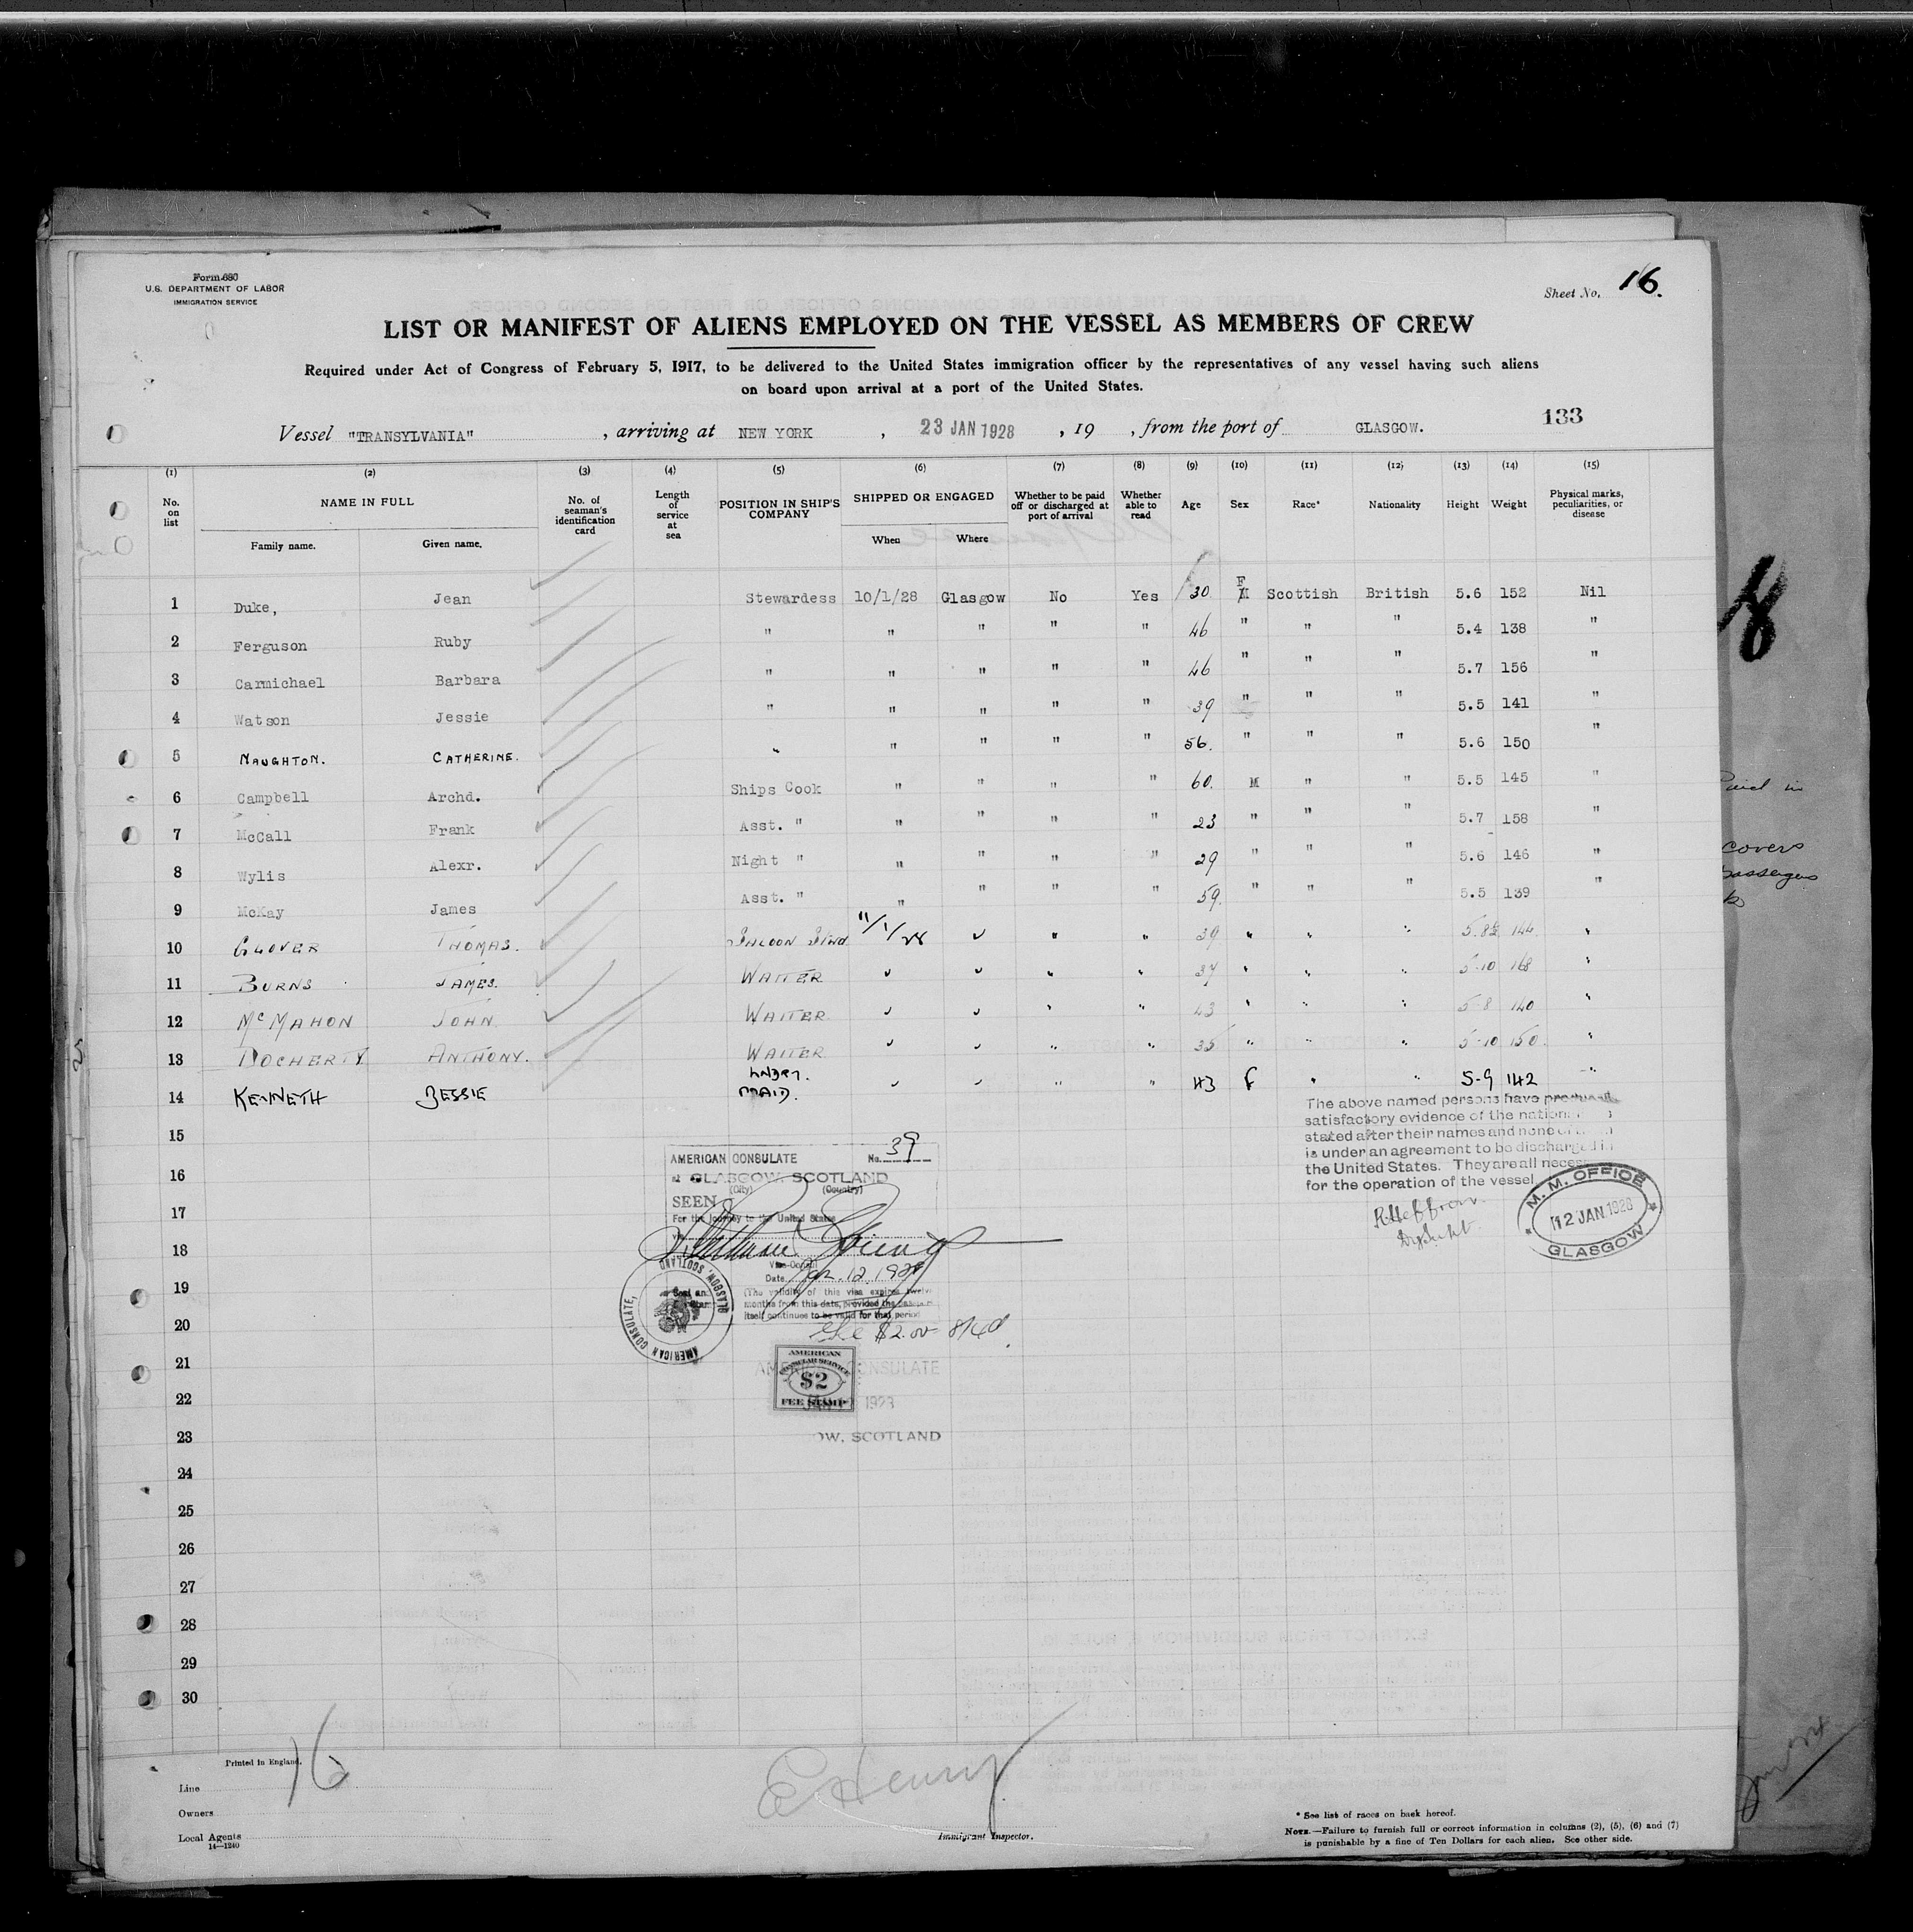 Form 680
U.S. DEPARTMENT OF LABOR
IMMIGRATION SERVICE
Sheet No. 16.
LIST OR MANIFEST OF ALIENS EMPLOYED ON THE VESSEL AS MEMBERS OF CREW
Required under Act of Congress of February 5, 1917, to be delivered to the United States immigration officer by the representatives of any vessel having such aliens
on board upon arrival at a port of the United States.
133
Vessel "TRANSYLVANIA" , arriving at NEW YORK , 23 JAN 1928 , 19 , from the port of GLASGOW.
(1) (2) (3) (4) (5) (6) (7) (8) (9) (10) (11) (12) (13) (14) (15)
No. on list NAME IN FULL Family name. Given name. No. of seaman's identification card Length of service at sea POSITION IN SHIP'S COMPANY SHIPPED OR ENGAGED When Where Whether to be paid off or discharged at port of arrival Whether able to read Age Sex Race* Nationality Height Weight Physical marks, peculiarities, or disease
1 Duke, Jean Stewardess 10/1/28 Glasgow No Yes 30 F Scottish British 5.6 152 Nil
2 Ferguson Ruby " " " " " 46 " " " 5.4 138 "
3 Carmichael Barbara " " " " " 46 " " " 5.7 156 "
4 Watson Jessie " " " " " 39 " " " 5.5 141 "
5 NAUGHTON. CATHERINE. " " " " " 56. " " " 5.6 150 "
6 Campbell Archd. Ships Cook " " " " 60. M " " 5.5 145 "
7 McCall Frank Asst. " " " " " 23 " " " 5.7 158 "
8 Wylis Alexr. Night " " " " " 29 " " " 5.6 146 "
9 McKay James Asst. " " " " " 59. " " " 5.5 139 "
10 GLOVER THOMAS. SALOON Stwd 11/1/28 " " " 39 " " " 5.8½ 144 "
11 BURNS JAMES. WAITER " " " " 37 " " " 5-10 168 "
12 McMAHON JOHN WAITER " " " " 43 " " " 5-8 140 "
13 DOCHERTY ANTHONY. WAITER " " " " 35 " " " 5-10 150. "
14 KENNETH JESSIE LNDRY. MAID. " " " " 43 F " " 5-9 142 "
15
16
17
18
19
20
21
22
23
24
25
26
27
28
29
30
The above named persons have
satisfactory evidence of the
stated after their names and none of
is under an agreement to be discharged in
the United States. They are all
for the operation of the vessel.
M. M. OFFICE
12 JAN 1928
GLASGOW
AMERICAN CONSULATE No. 39
at GLASGOW, SCOTLAND
(City) (Country)
SEEN
For the journey to the United States
Vice-Consul
Date Jan. 12, 1928
(The validity of this visa expires twelve
months from this date, provided the
itself continues to be valid for that period
AMERICAN CONSULATE, GLASGOW, SCOTLAND
$2.00
AMERICAN
CONSULAR SERVICE
$2
FEE STAMP
AMERICAN CONSULATE
1928
OW, SCOTLAND
Paid in
covers
passengers
Printed in England.
16
Line
Owners
Local Agents
14—1240
E Henry
Immigrant Inspector.
* See list of races on back hereof.
NOTE.—Failure to furnish full or correct information in columns (2), (5), (6) and (7)
is punishable by a fine of Ten Dollars for each alien. See other side.